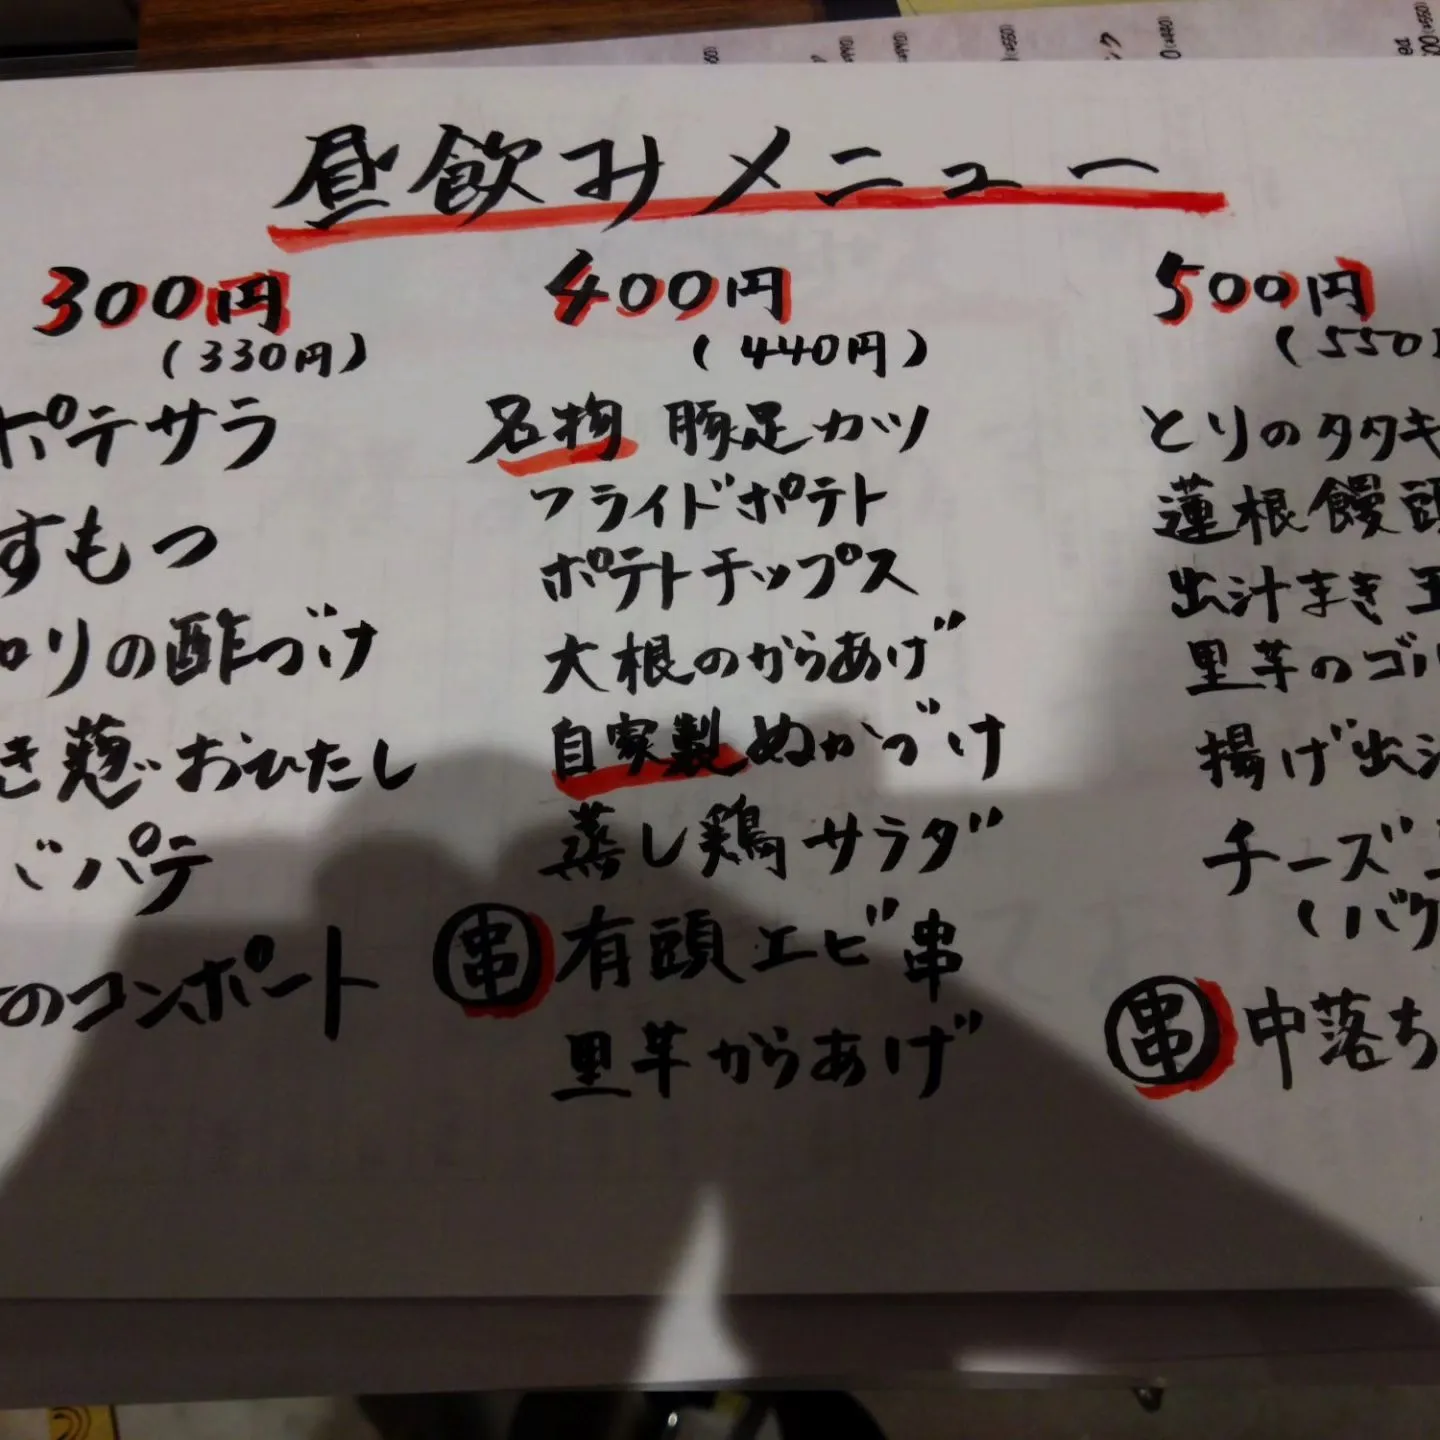 昼飲みメニュー
300円
(330円)
ポテサラ
すもつ
ロリの酢づけ
き葱・おひたし
バパテ
のコンポート
400円
(440円)
名物 豚足カツ
フライドポテト
ポテトチップス
大根のからあげ
自家製ぬかづけ
蒸し鶏サラダ
串 有頭エビ串
里芋からあげ
500円
(550
とりのタタキ
蓮根饅頭
出汁まき玉
里芋のゴル
揚げ出汁
チーズ
(バケ
串 中落ち